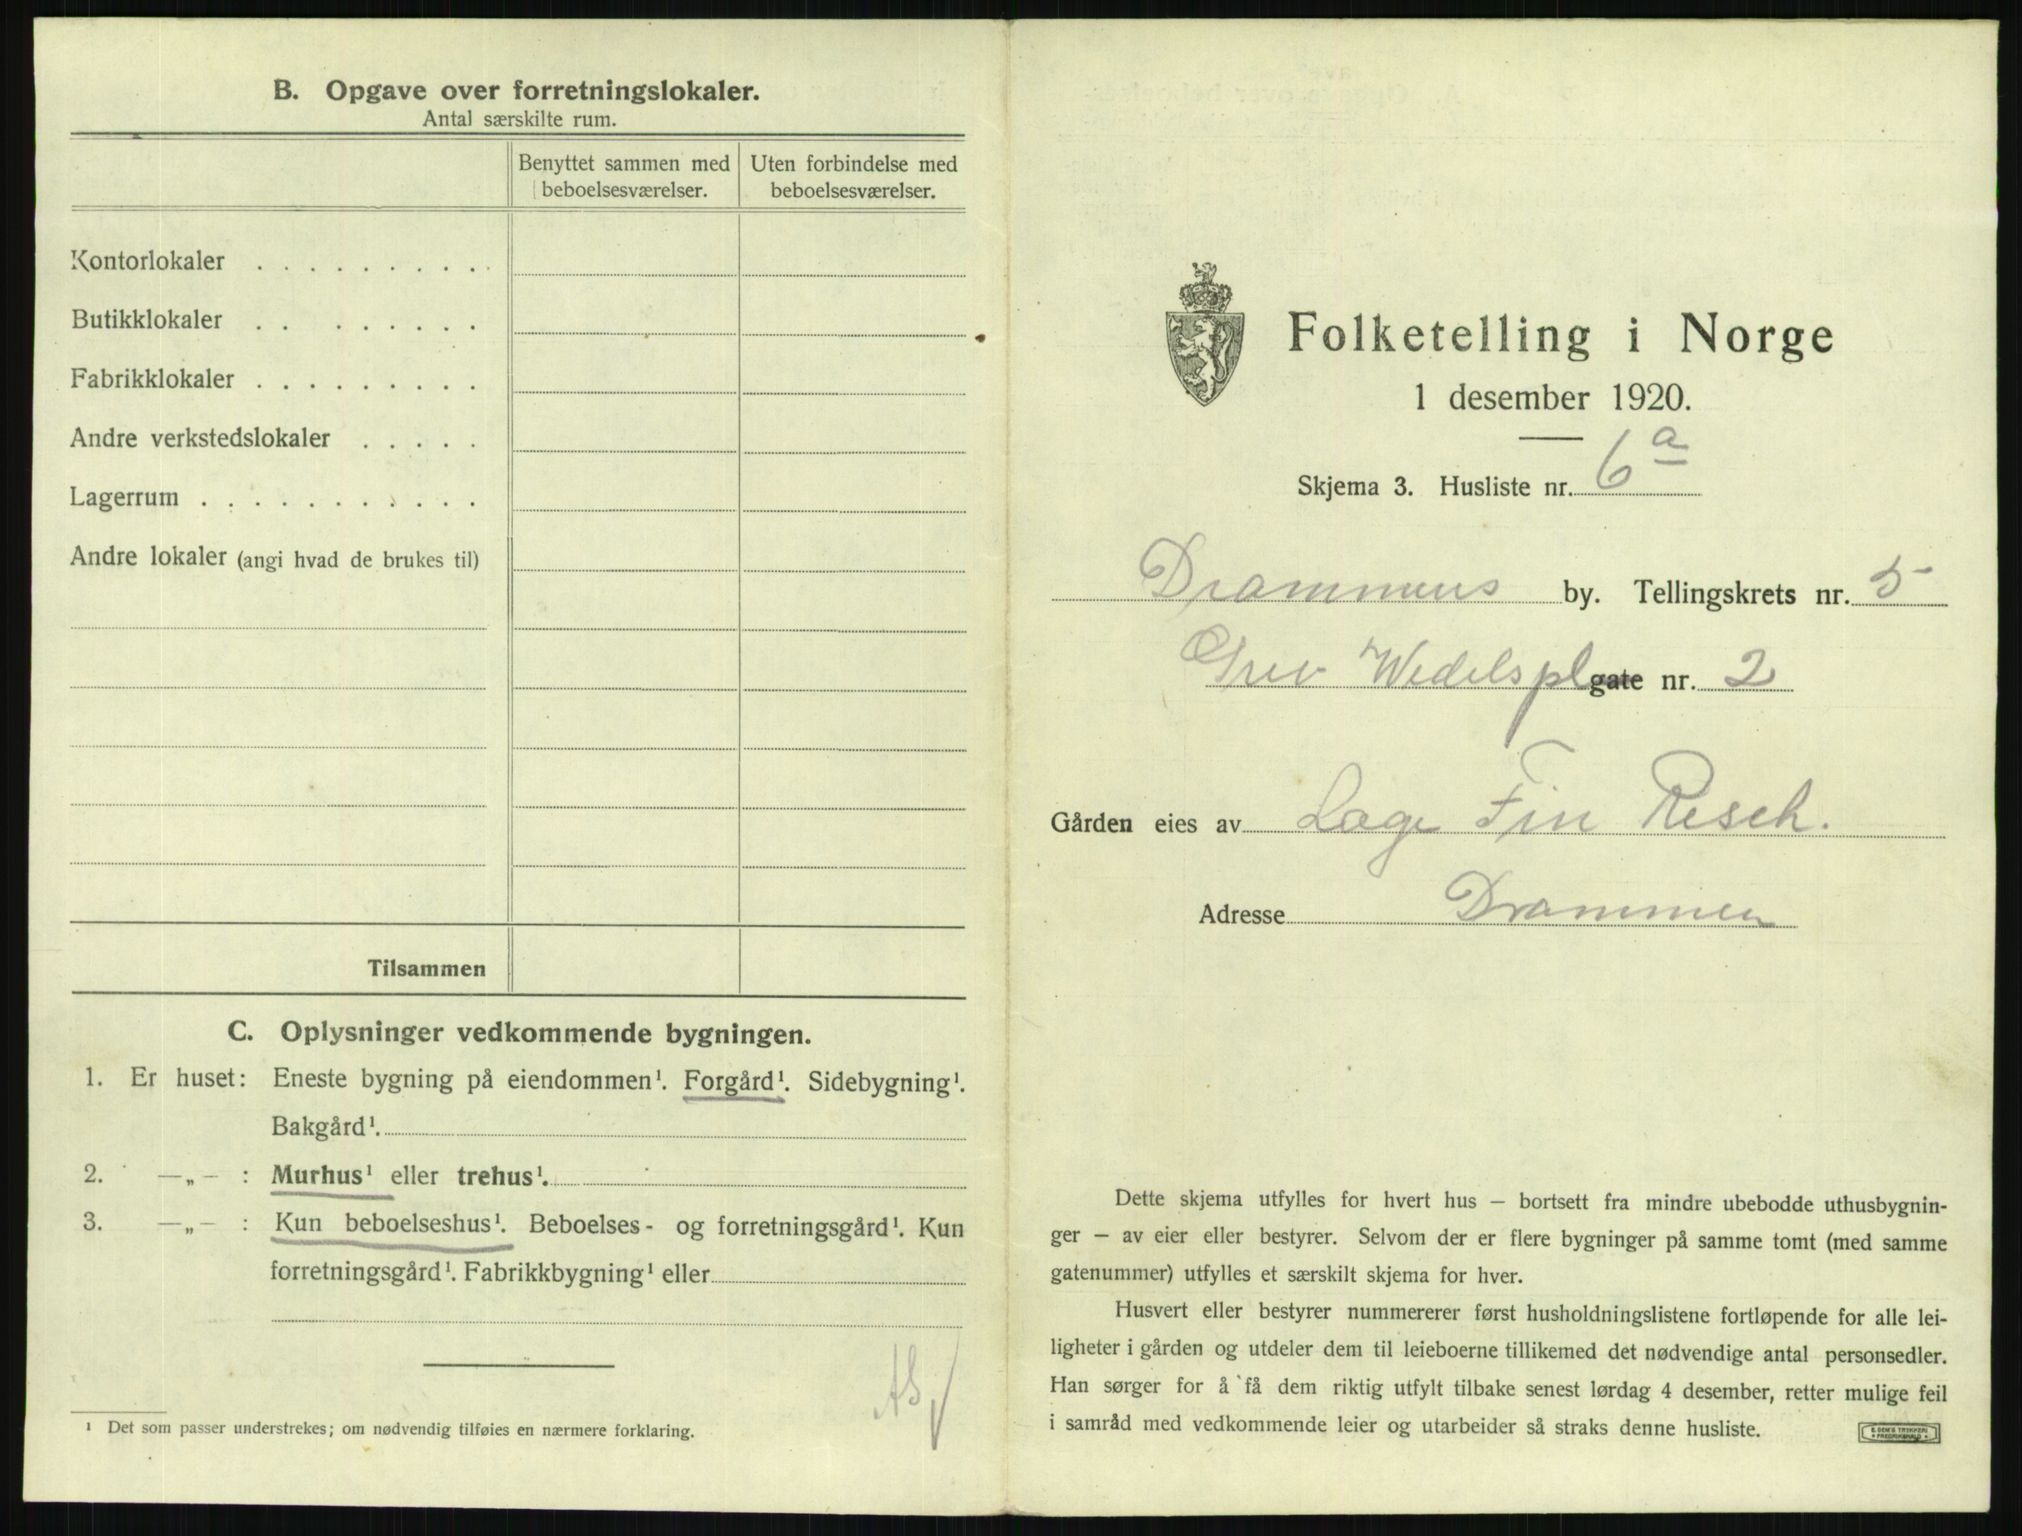 B. Opgave over forretningslokaler.
Antal særskilte rum.
Benyttet sammen med beboelsesværelser.
Uten forbindelse med beboelsesværelser.
Kontorlokaler . . . . . . . . .
Butikklokaler . . . . . . . .
Fabrikklokaler . . . . . . . . .
Andre verkstedslokaler . . . . .
Lagerrum . . . . . . . . . . .
Andre lokaler (angi hvad de brukes til)
Tilsammen
C. Oplysninger vedkommende bygningen.
1. Er huset: Eneste bygning på eiendommen¹. Forgård¹. Sidebygning¹.
Bakgård¹.
2. —„— : Murhus¹ eller trehus¹.
3. —„— : Kun beboelseshus¹. Beboelses- og forretningsgård¹. Kun
forretningsgård¹. Fabrikkbygning¹ eller
¹ Det som passer understrekes; om nødvendig tilføies en nærmere forklaring.
Folketelling i Norge
1 desember 1920.
Skjema 3. Husliste nr. 6a
Drammens by. Tellingskrets nr. 5
Grev Wedelspl gate nr. 2
Gården eies av Læge Fin Resch.
Adresse Drammen
Dette skjema utfylles for hvert hus — bortsett fra mindre ubebodde uthusbygnin-
ger — av eier eller bestyrer. Selvom der er flere bygninger på samme tomt (med samme
gatenummer) utfylles et særskilt skjema for hver.
Husvert eller bestyrer nummererer først husholdningslistene fortløpende for alle lei-
ligheter i gården og utdeler dem til leieboerne tillikemed det nødvendige antal personsedler.
Han sørger for å få dem riktig utfylt tilbake senest lørdag 4 desember, retter mulige feil
i samråd med vedkommende leier og utarbeider så straks denne husliste.